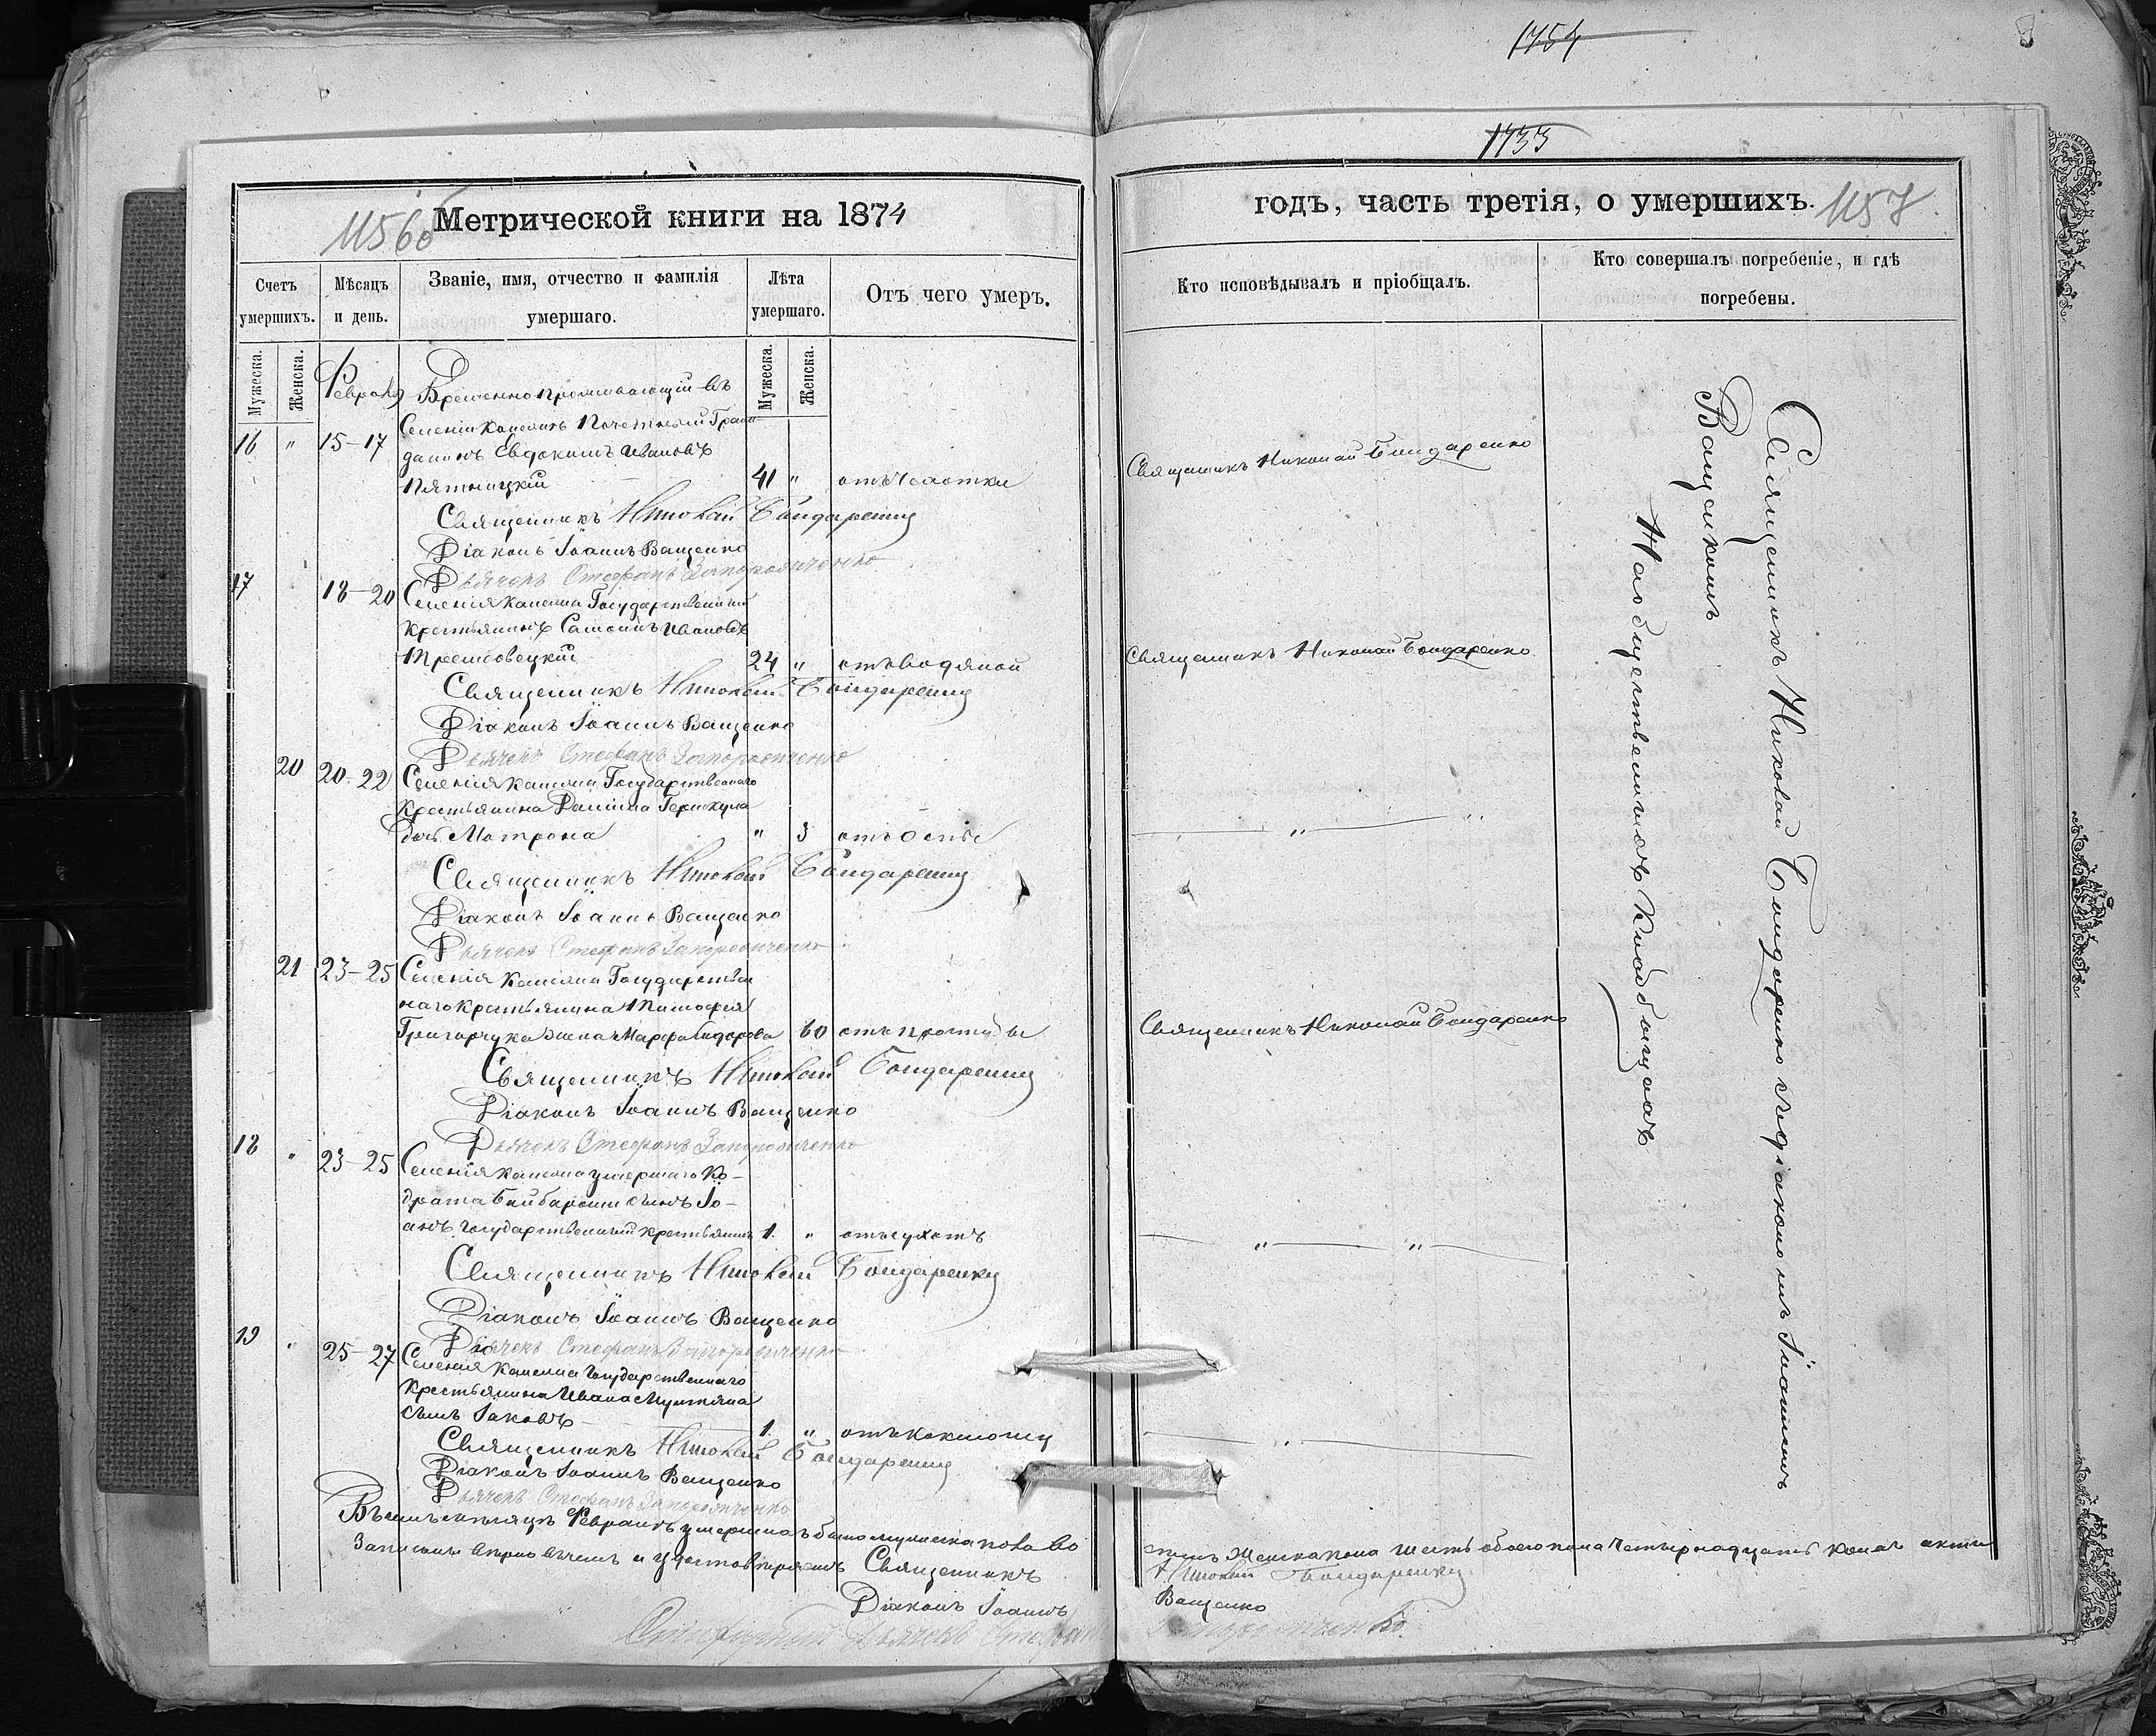 1754
1733
1156об
Метрической книги на 1874
Счетъ умершихъ.
Мужеска.
Женска.
Мѣсяцъ и день.
Званіе, имя, отчество и фамилія
умершаго.
Лѣта
умершаго.
Мужеска.
Женска.
Отъ чего умеръ.
Февраля
Временно проживающій въ
Селеніи Каменкѣ Почетный Граж-
16 " 15-17
данинъ Евдокимъ Ивановъ
Пятницкій 41 " отъ чахотки
Священникъ Николай Бондаренко
Діаконъ Іоаннъ Ващенко
Дьячекъ Стефанъ Запорожченко
17 18-20 Селенія Каменки Государственный
Крестьянинъ Самсонъ Ивановъ
24 " отъ водяной
Священникъ Николай Бондаренко
Діаконъ Іоаннъ Ващенко
Дьячекъ Стефанъ Запорожченко
20 20-22 Селенія Каменки Государственнаго
Крестьянина Даніила
дочь Матрона " 3 отъ оспы
Священникъ Николай Бондаренко
Діаконъ Іоаннъ Ващенко
Дьячекъ Стефанъ Запорожченко
21 23-25 Селенія Каменки Государствен
наго Крестьянина Тимофея
Григорчука жена Марфа Сидорова 60 отъ простуды
Священникъ Николай Бондаренко
Діаконъ Іоаннъ Ващенко
Дьячекъ Стефанъ Запорожченко
18 " 23-25 Селенія Каменки умершаго Ко-
драта сынъ Іо-
анъ Государственный крестьянинъ 1. " отъ сухотъ
Священникъ Николай Бондаренко
Діаконъ Іоаннъ Ващенко
Дьячекъ Стефанъ Запорожченко
19 " 25-27 Селенія Каменки Государственнаго
Крестьянина Ивана Мунтяна
сынъ Іаковъ 1. " отъ коклюшу
Священникъ Николай Бондаренко
Діаконъ Іоаннъ Ващенко
Дьячекъ Стефанъ Запорожченко
мѣсяцѣ Февралѣ умершихъ было мужеска пола во
Записаны вѣрно въ чемъ и удостовѣряемъ Священникъ
Діаконъ Іоаннъ
Дьячекъ Стефанъ
годъ, часть третія, о умершихъ.
1157
Кто исповѣдывалъ и пріобщалъ.
Кто совершалъ погребеніе, и гдѣ
погребены.
Священникъ Николай Бондаренко
Священникъ Николай Бондаренко
" "
Священникъ Николай Бондаренко
" "
"
Священникъ Николай Бондаренко съ діакономъ Іоанномъ
Ващенкомъ
На общественномъ Кладбищѣ
семь Женска пола шесть обоего пола четырнадцать коихъ акты
Николай Бондаренко
Ващенко
Запорожченко